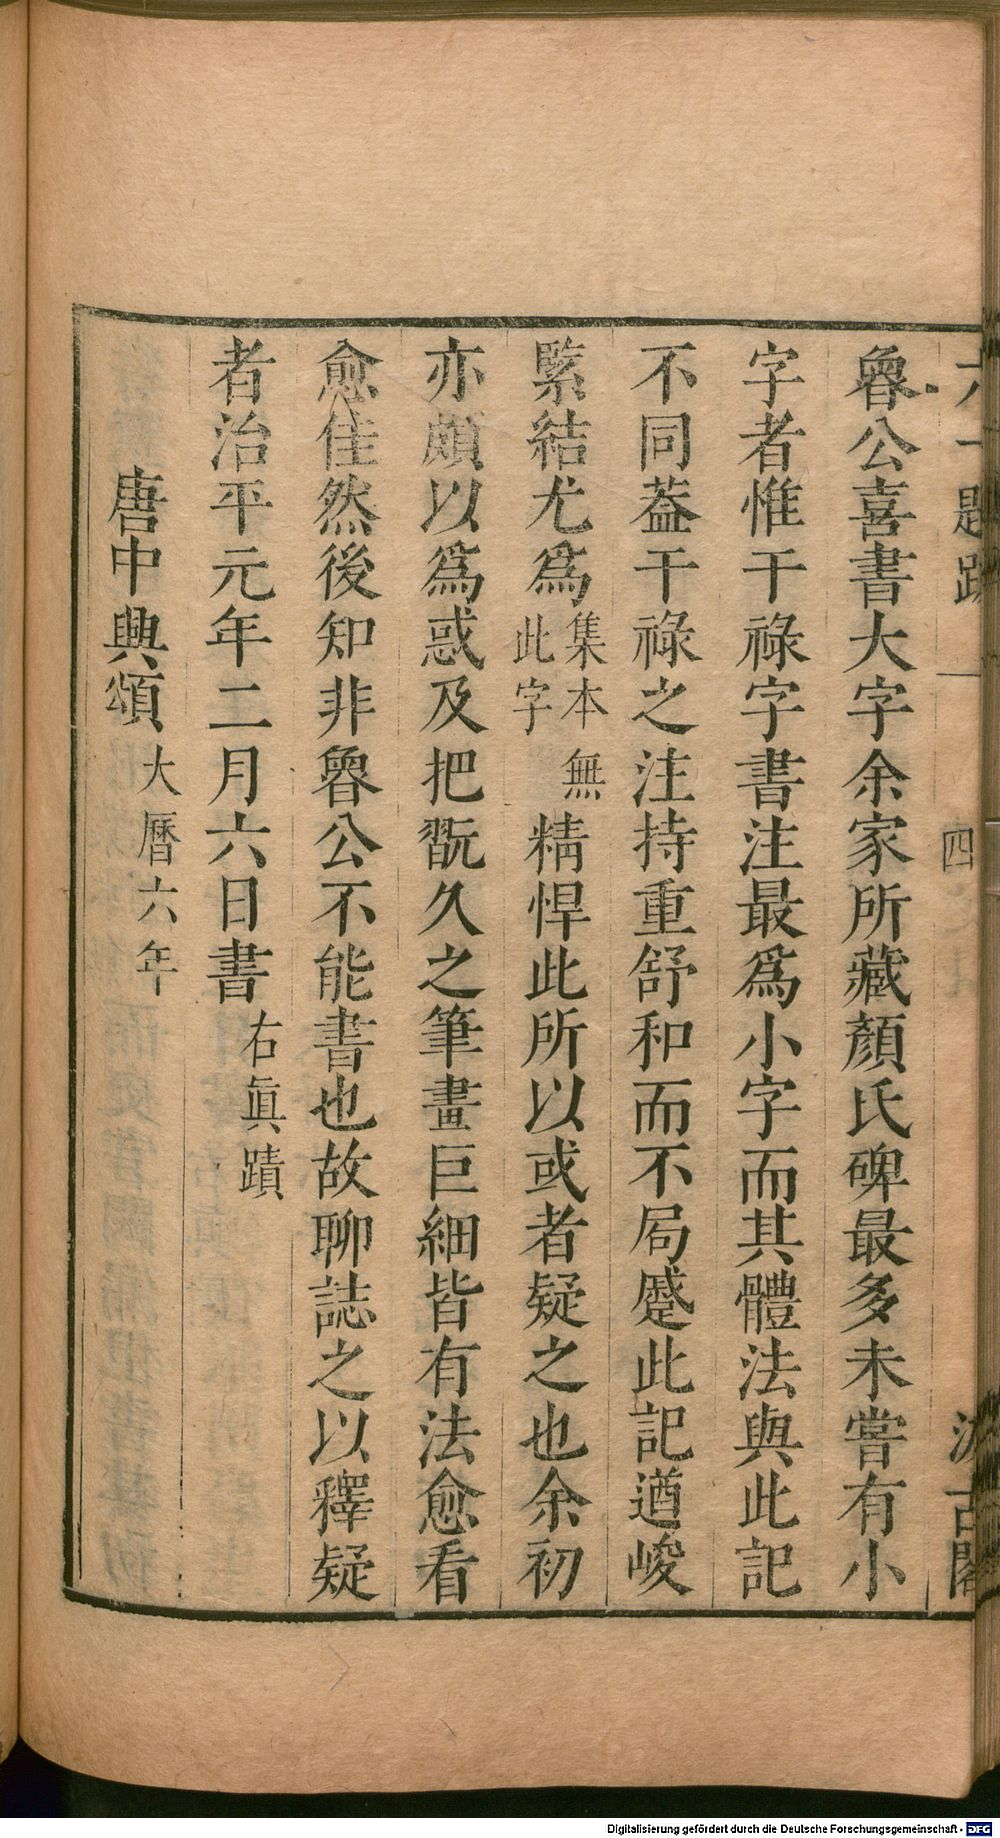 六一題跋 四 汲古閣
魯公喜書大字余家所藏顏氏碑最多未嘗有小
字者惟干祿字書注最爲小字而其體法與此記
不同葢干祿之注持重舒和而不局蹙此記遒峻
緊結尤爲集本無此字精悍此所以或者疑之也余初
亦頗以爲惑及把翫久之筆畫巨細皆有法愈看
愈佳然後知非魯公不能書也故聊誌之以釋疑
者治平元年二月六日書右眞蹟
唐中興頌大曆六年
Digitalisierung gefördert durch die Deutsche Forschungsgemeinschaft - DFG